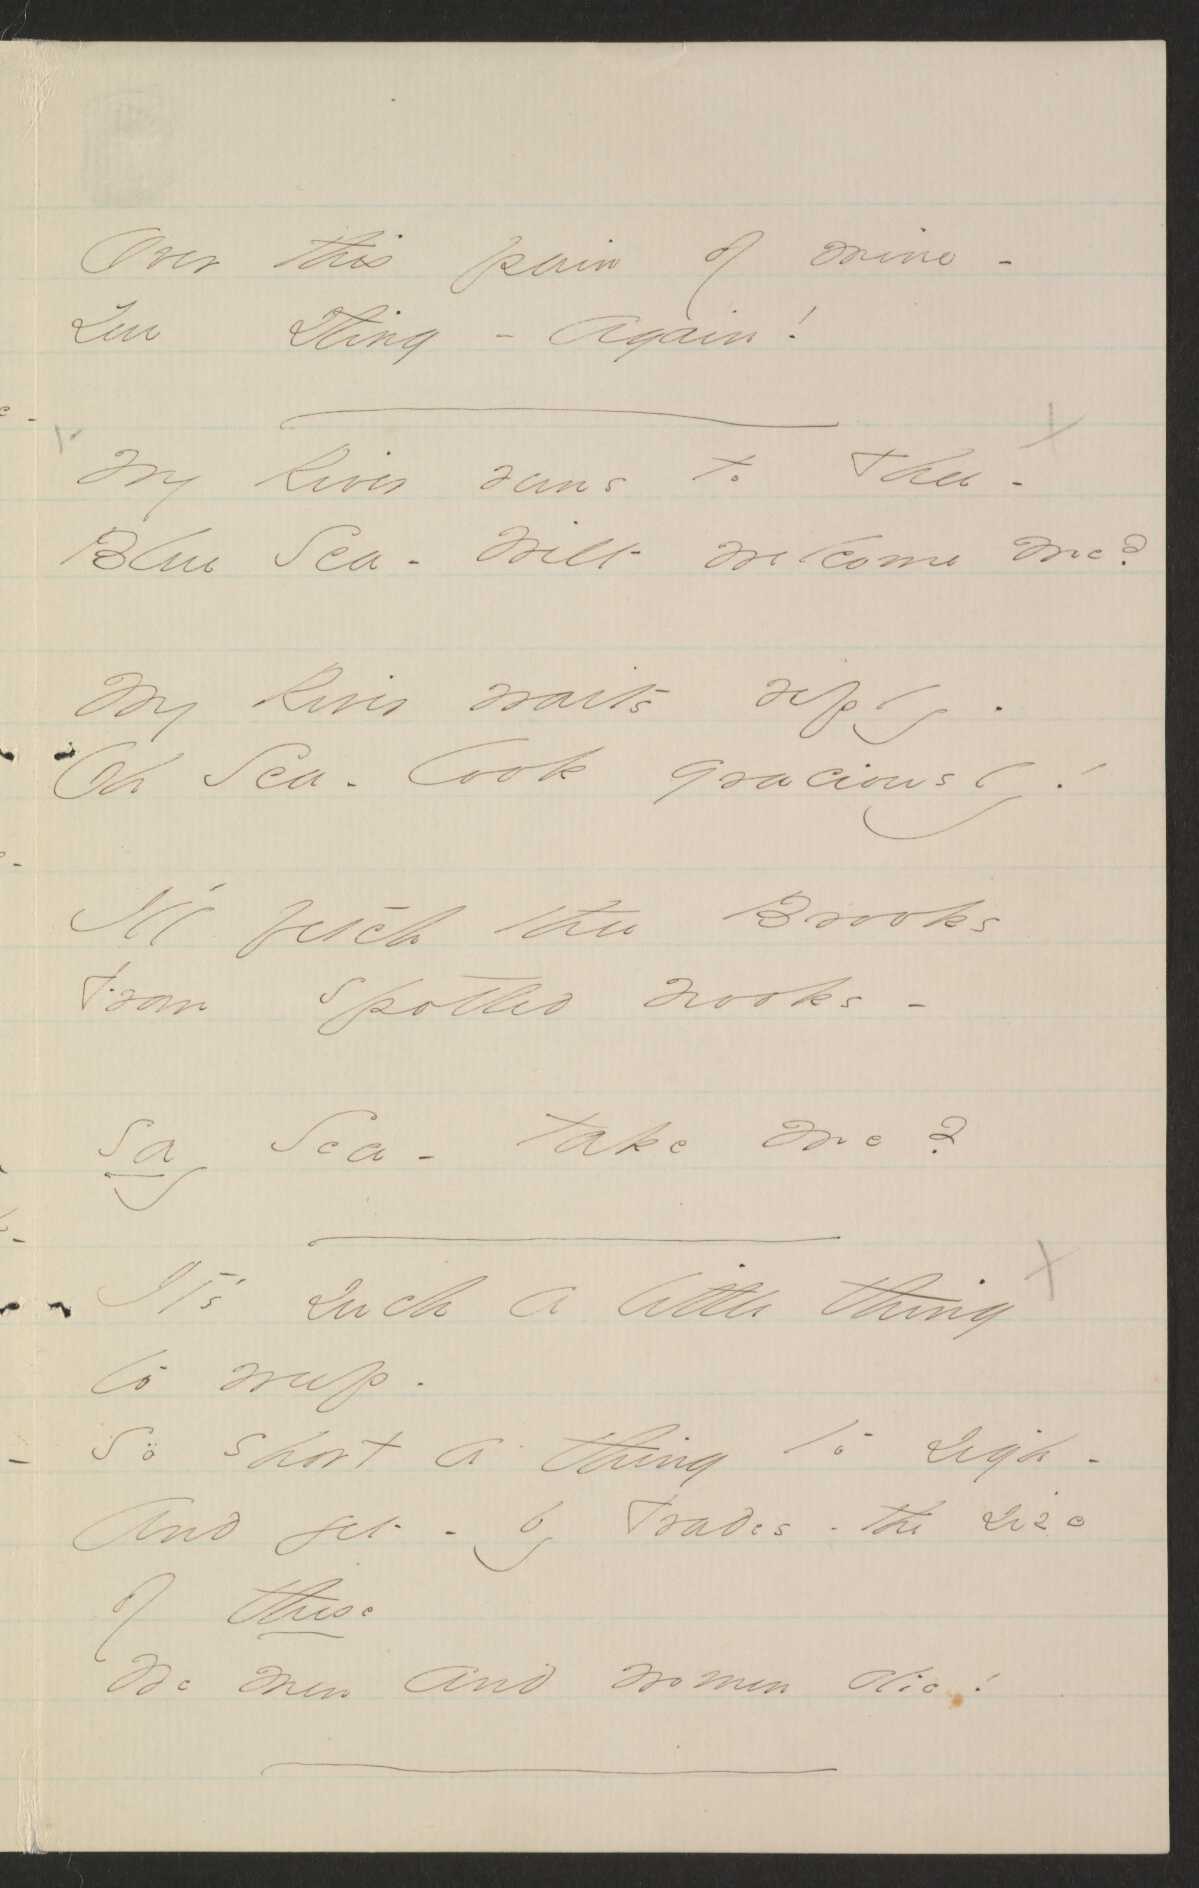 Over this pain of mine -
Sue Sting - Again!
My River runs to Thee -
Blue Sea - Wilt welcome me?
My River waits reply -
Oh Sea - look graciously!
I'll fetch thee Brooks
From spotted nooks -
Say Sea - take me?
It's such a little thing
to weep -
So short a thing to sigh -
And yet - by Trades - the size
of these
We men and women die!